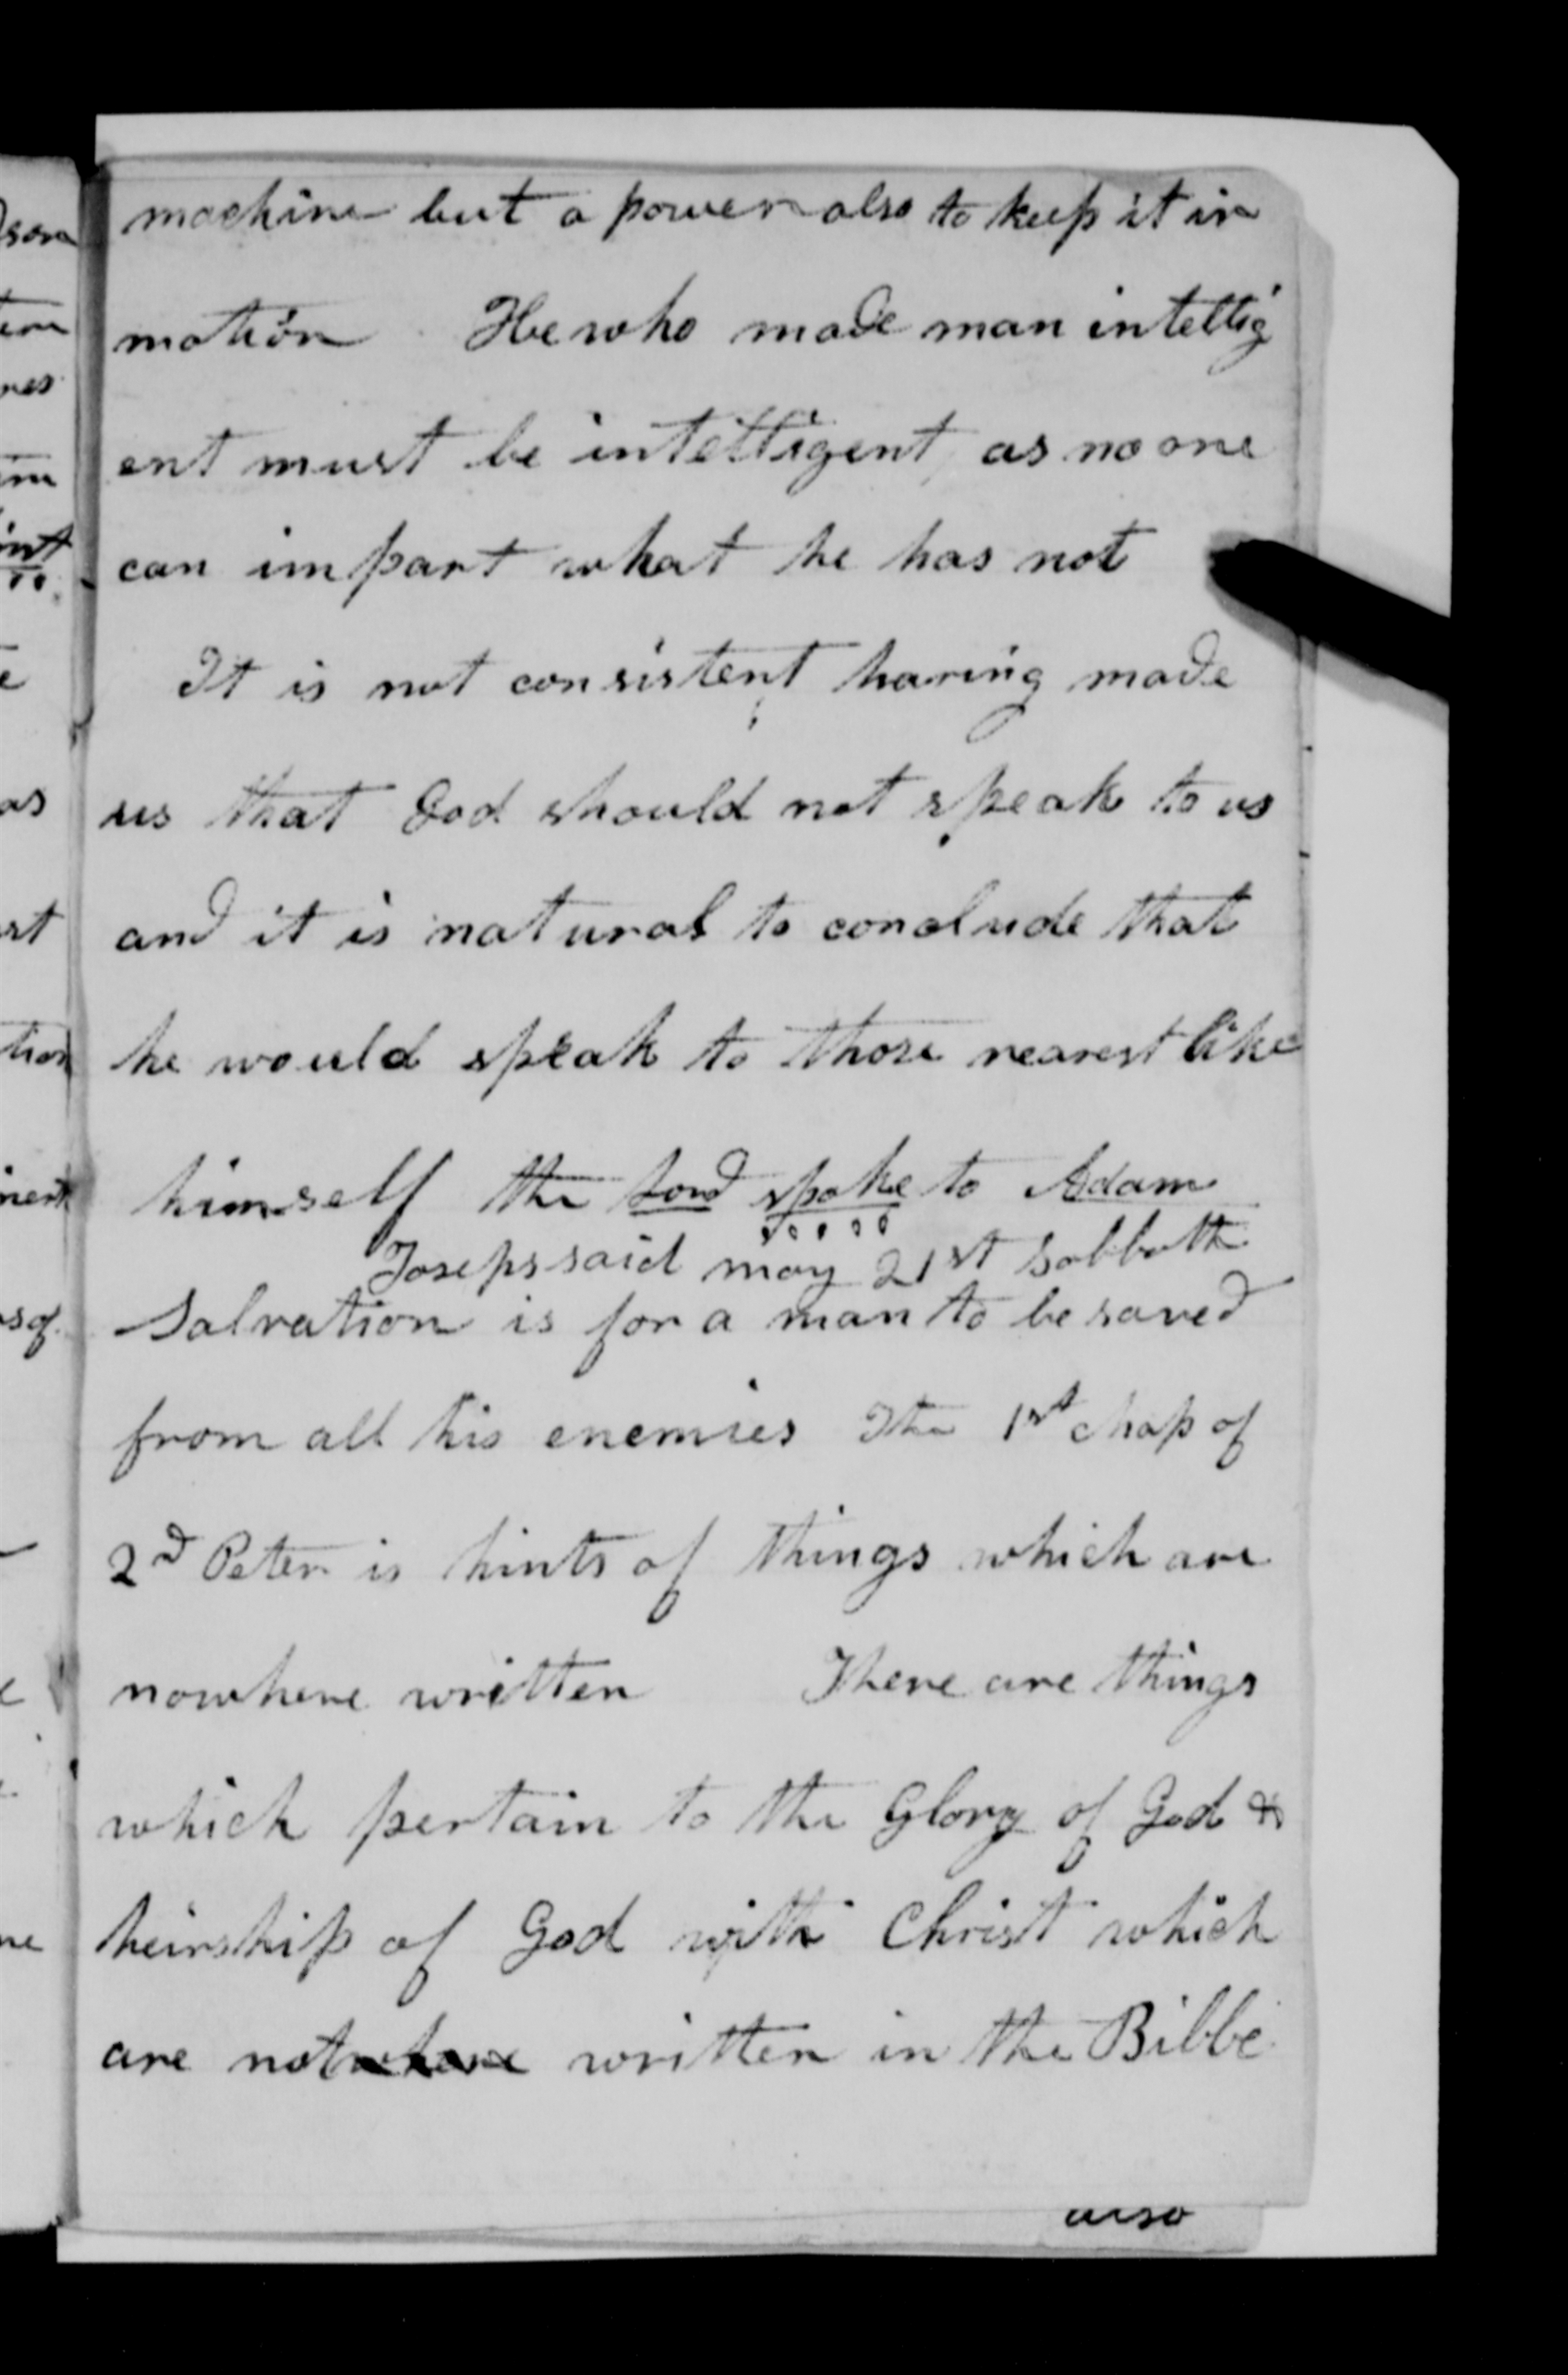 machine but a power also to keep it in
motion He who made man intellig
ent must be intelligent, as no one
can impart what he has not
It is not consistent having made
us that God should not speak to us
and it is natural to conclude that
he would speak to those nearest like
himself the Lord spoke to Adam
Joseps said may 21st Sabbath
Salvation is for a man to be saved
from all his enemies The 1st chap of
2d Peter is hints of things which are
nowhere written There are things
which pertain to the Glory of God &
heirship of God with Christ which
are not where written in the Bible
also